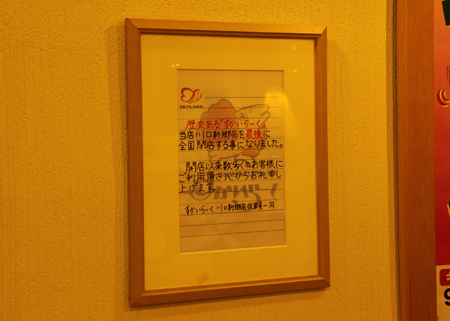 SKYLARK
歴史ある「すかいらーく」
当店川口新郷店を最後に
全国閉店する事になりました。
開店以来数多くのお客様に
ご利用頂き心からお礼申し
上げます。
すかいらーく川口新郷店従業員一同
すかいらーく